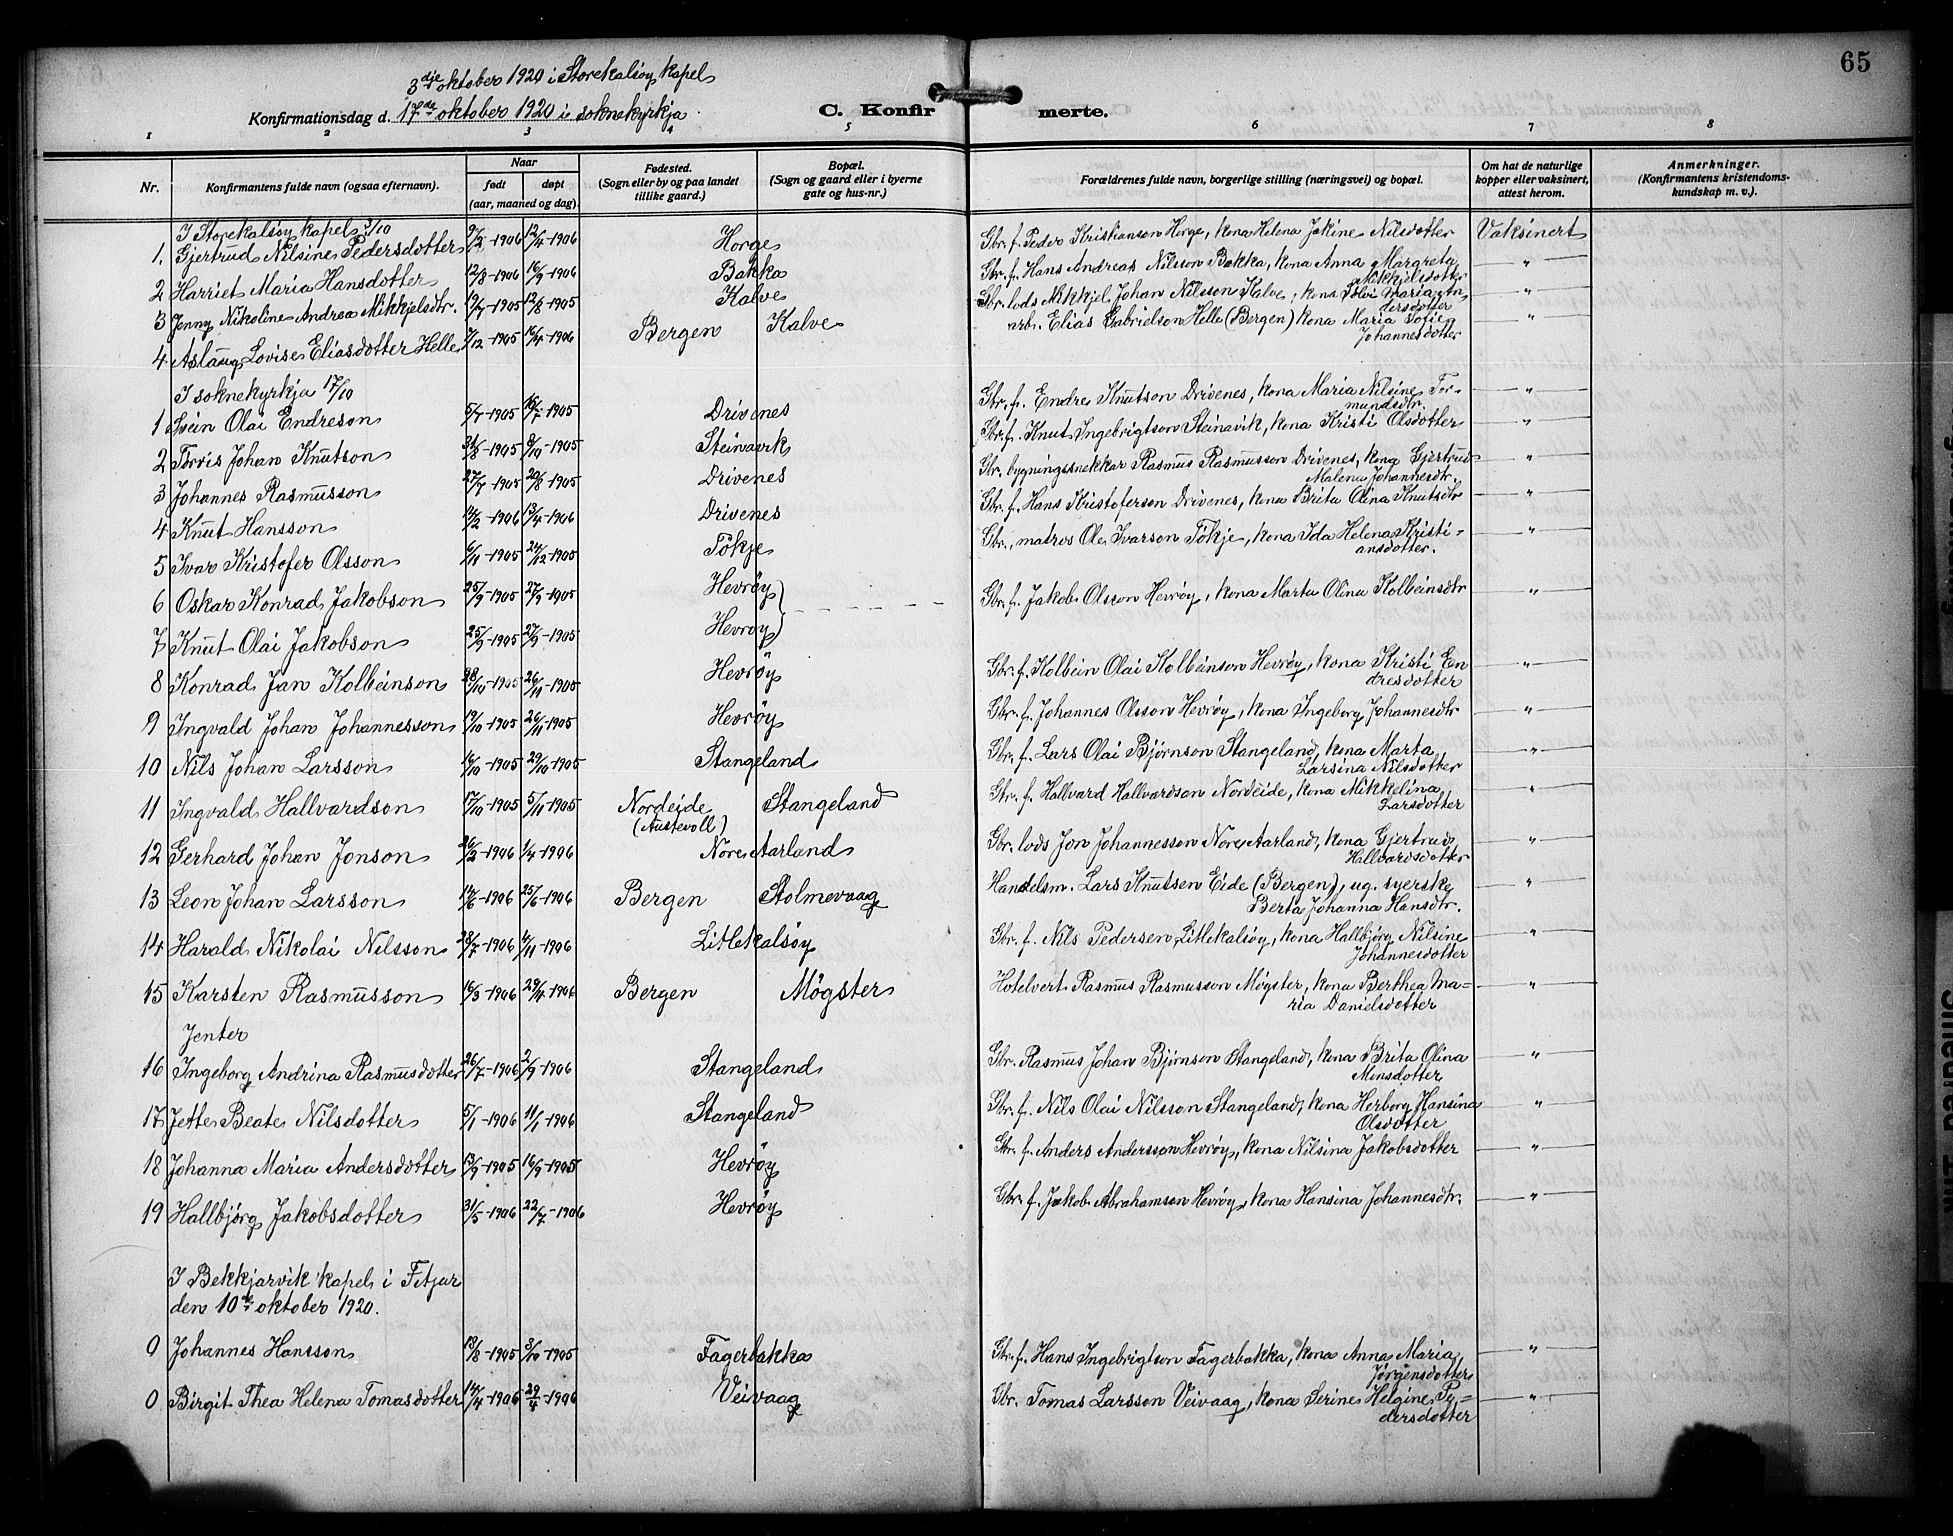 65
3dje oktober 1920 i Storekalsøy kapel
Konfirmationsdag d. 17de oktober 1920 i soknekyrkja
C. Konfirmerte.
1 2 3 4 5 6 7 8
Nr. Konfirmantens fulde navn (ogsaa efternavn). Naar født døpt (aar, maaned og dag) Fødested. (Sogn eller by og paa landet tillike gaard.) Bopæl. (Sogn og gaard eller i byerne gate og hus-nr.) Forældrenes fulde navn, borgerlige stilling (næringsvei) og bopæl. Om hat de naturlige kopper eller vaksinert, attest herom. Anmerkninger. (Konfirmantens kristendomskundskap m. v.).
I Storekalsøy kapel 3/10
1. Gjertrud Nilsine Pedersdotter 9/2-1906 12/4-1906 Horge Gbr. f. Peder Kristianson Horge, kona Helena Jakine Nilsdotter Vaksinert
2 Harriet Maria Hansdotter 12/8-1906 16/9-1906 Bakka Gbr. f. Hans Andreas Nilsson Bakka, kona Anna Margreta Mikkjelsdotter — " —
3 Jenny Nikoline Andrea Mikkjelsdtr. 19/7-1905 12/8-1905 Kalve Gbr. lods Mikkjel Johan Nilsson Kalve, kona Sølvi Maria Andersdotter — " —
4 Aslaug Lovise Eliasdotter Helle 7/12-1905 16/4-1906 Bergen Kalve arb. Elias Gabrielson Helle (Bergen) kona Maria Sofie Johannesdotter — " —
I soknekyrkja 17/10
1 Svein Olai Endreson 5/7-1905 16/7-1905 Drivenes Gbr. f. Endre Knutson Drivenes, kona Maria Nilsine Tormundsdtr. — " —
2 Torris Johan Knutson 31/8-1905 8/10-1905 Steinavik Gbr. f. Knut Ingebrigtson Steinavik, kona Kristi Olsdotter — " —
3 Johannes Rasmusson 27/7-1905 20/8-1905 Drivenes Gbr. bygningssnekkar Rasmus Rasmusson Drivenes, kona Gjertrud Malena Johannesdtr. — " —
4 Knut Hansson 14/2-1906 13/4-1906 Drivenes Gbr. f. Hans Kristoferson Drivenes, kona Brita Olina Knutsdtr — " —
5 Ivar Kristofer Olsson 6/11-1905 24/12-1905 Tökje Gbr., matros Ole Ivarson Tökje, kona Ida Helena Kristiansdotter. — " —
6 Oskar Konrad Jakobson 25/9-1905 27/9-1905 Hevrøy Gbr. f. Jakob Olsson Hevrøy, kona Marta Olina Kolbeinsdtr — " —
7 Knut Olai Jakobson 25/9-1905 27/9-1905 Hevrøy
8 Konrad Jan Kolbeinson 28/10-1905 26/11-1905 Hevrøy Gbr. f. Kolbein Olai Kolbeinson Hevrøy, kona Kristi Endresdotter — " —
9 Ingvald Johan Johannesson 19/10-1905 26/11-1905 Hevrøy Gbr. f. Johannes Olsson Hevrøy, kona Ingeborg Johannesdtr — " —
10 Nils Johan Larsson 16/10-1905 29/10-1905 Stangeland Gbr. f. Lars Olai Bjørnson Stangeland, kona Marta Larsina Nilsdotter — " —
11 Ingvald Hallvardson 17/10-1905 5/11-1905 Nordeide (Austevoll) Stangeland Str. f. Hallvard Hallvardson Nordeide, kona Mikkelina Larsdotter — " —
12 Gerhard Johan Jonson 26/2-1906 1/4-1906 Nore Aarland Gbr. lods Jon Johannesson Nore Aarland, kona Gjertrud Hallvardsdotter — " —
13 Leon Johan Larsson 14/6-1906 25/6-1906 Bergen Stolmevaag Handelsm. Lars Knutsen Eide (Bergen), ug. syerske Berta Johanna Hansdtr. — " —
14 Harald Nikolai Nilsson 28/7-1906 4/11-1906 Litlekalsøy Gbr. f. Nils Pedersen Litlekalsøy, kona Hallbjørg Nilsine Johannesdotter — " —
15 Karsten Rasmusson 16/3-1906 29/4-1906 Bergen Møgster Hotelvert Rasmus Rasmusson Møgster, kona Berthea Maria Danielsdotter — " —
Jenter
16 Ingeborg Andrina Rasmusdotter 26/7-1906 2/9-1906 Stangeland Gbr. Rasmus Johan Bjørnson Stangeland, kona Brita Olina Monsdotter — " —
17 Jette Beate Nilsdotter 5/1-1906 11/1-1906 Stangeland Gbr. f. Nils Olai Nilsson Stangeland, kona Herborg Hansina Olsdotter — " —
18 Johanna Maria Andersdotter 13/9-1905 16/9-1905 Hevrøy Gbr. f. Anders Andersson Hevrøy, kona Nilsina Jakobsdotter — " —
19 Hallbjørg Jakobsdotter 31/5-1906 22/7-1906 Hevrøy Gbr. f. Jakob Abrahamson Hevrøy, kona Hansina Johannesdtr. — " —
I Bekkjarvik kapel i Fitjar
den 10de oktober 1920.
0 Johannes Hansson 13/8-1905 3/10-1905 Fagerbakka Gbr. f. Hans Ingebrigtson Fagerbakka, kona Anna Maria Jørgensdotter — " —
0 Birgit Thea Helena Tomasdotter 14/4-1906 29/4-1906 Veivaag Gbr. Tomas Larsson Veivaag, kona Serine Helgine Pedersdotter — " —